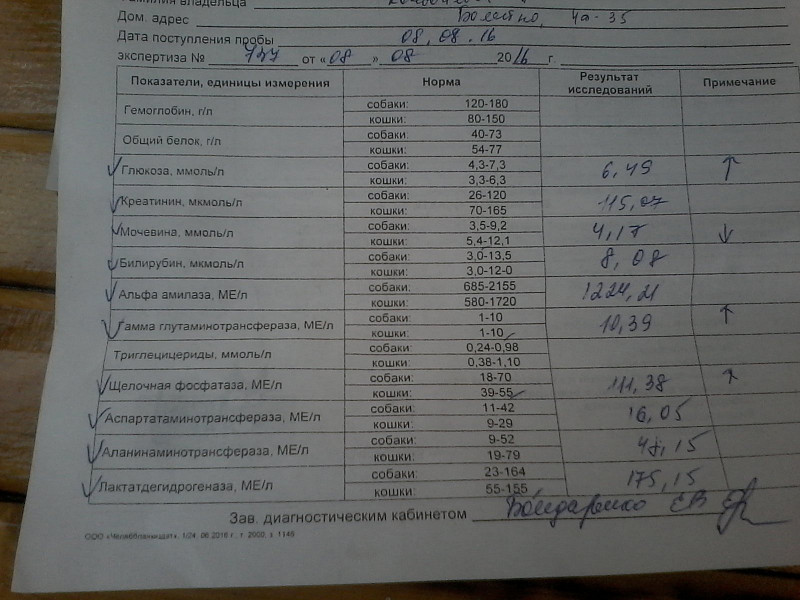 Фамилия владельца
Дом. адрес Болотно, 4а-35
Дата поступления пробы 08.08.16
экспертиза № 747 от «08» 08 2016 г.
Показатели, единицы измерения Норма Результат исследований Примечание
Гемоглобин, г/л собаки: 120-180
кошки: 80-150
Общий белок, г/л собаки: 40-73
кошки: 54-77
Глюкоза, ммоль/л собаки: 4,3-7,3 6,49 ↑
кошки: 3,3-6,3
Креатинин, мкмоль/л собаки: 26-120 115,07
кошки: 70-165
Мочевина, ммоль/л собаки: 3,5-9,2 4,17 ↓
кошки: 5,4-12,1
Билирубин, мкмоль/л собаки: 3,0-13,5 8,08
кошки: 3,0-12-0
Альфа амилаза, МЕ/л собаки: 685-2155 1224,21
кошки: 580-1720
Гамма глутаминотрансфераза, МЕ/л собаки: 1-10 10,39 ↑
кошки: 1-10
Триглецицериды, ммоль/л собаки: 0,24-0,98
кошки: 0,38-1,10
Щелочная фосфатаза, МЕ/л собаки: 18-70 111,38 ↑
кошки: 39-55
Аспартатаминотрансфераза, МЕ/л собаки: 11-42 16,05
кошки: 9-29
Аланинаминотрансфераза, МЕ/л собаки: 9-52 48,15
кошки: 19-79
Лактатдегидрогеназа, МЕ/л собаки: 23-164 175,15
кошки: 55-155
Зав. диагностическим кабинетом Бондаренко ЕВ
ООО «Челябланкиздат», 1/24, 06.2016 г., т. 2000, з. 1145